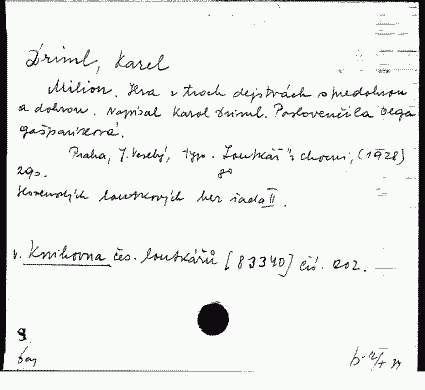 Driml, Karel
Milion. Hra v troch dejstvách s predohrou
a dohrou. Napísal Karol Driml. Poslovenčila Olga
Gašparíková.
Praha, J. Veselý, typ. "Loutkář" Choceni, (1928)
8°
29 s.
Slovenských loutkových hier řada II.
v. Knihovna čes. loutkářů [83340] čís. 202.
9